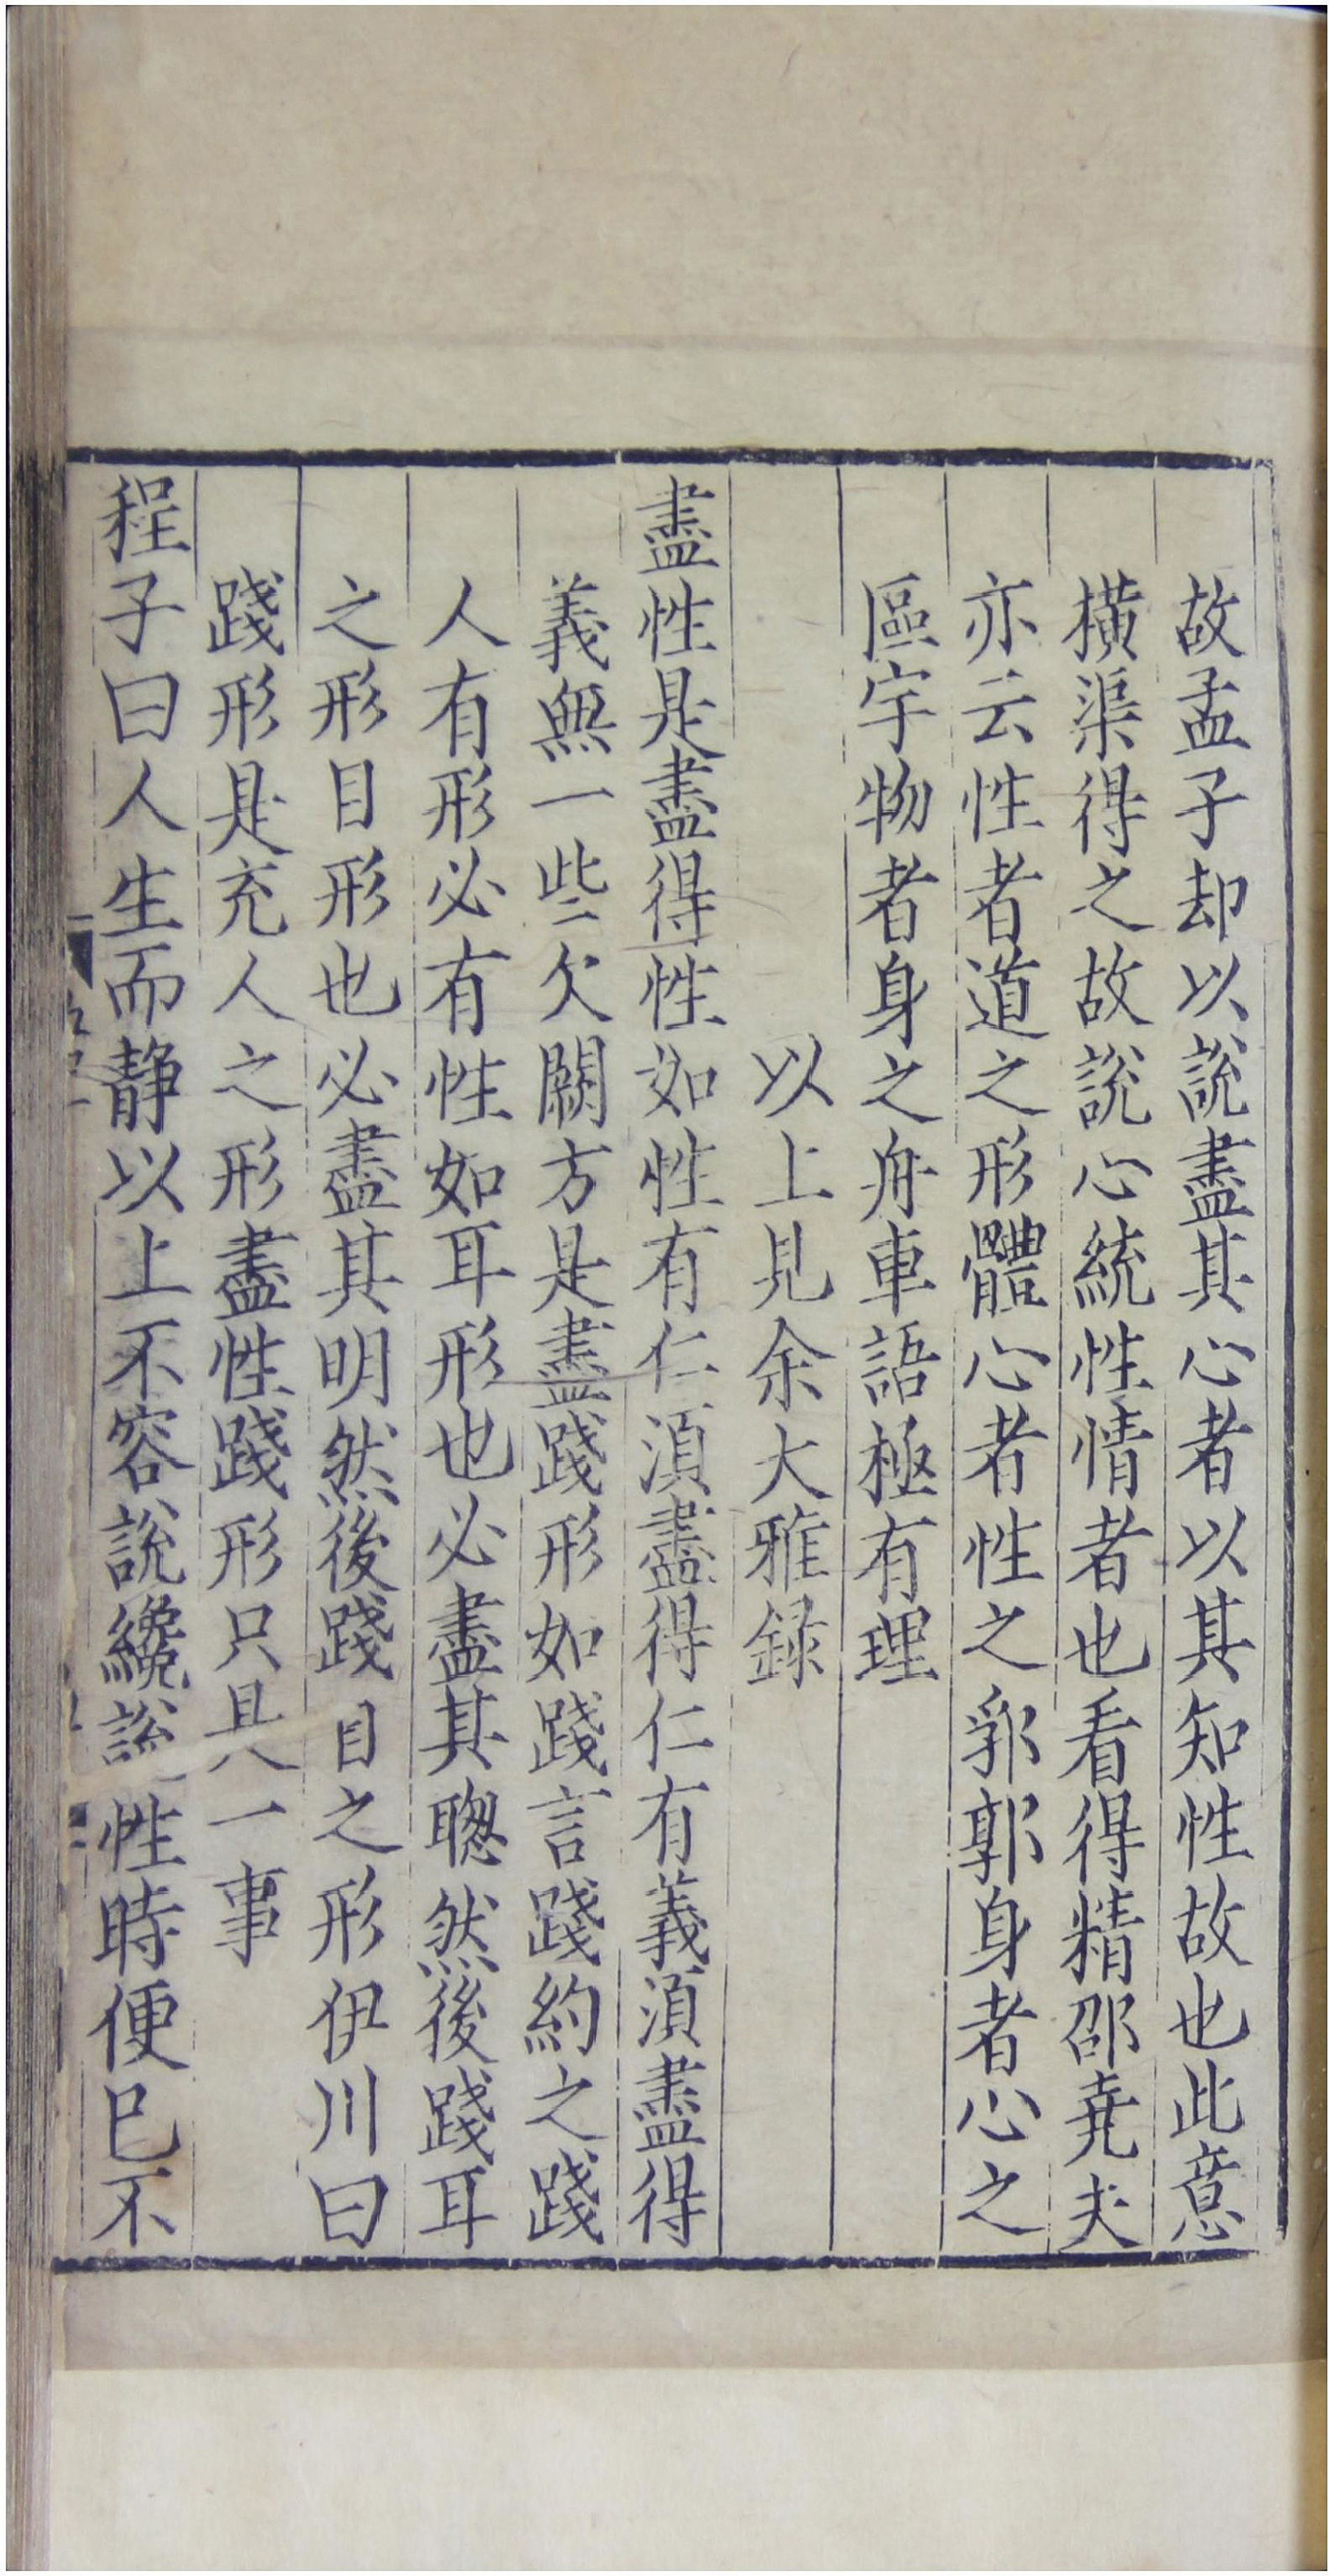 故孟子却以說盡其心者以其知性故也此意
橫渠得之故說心統性情者也看得精邵堯夫
亦云性者道之形體心者性之郛郭身者心之
區宇物者身之舟車語極有理
以上見余大雅録
盡性是盡得性如性有仁湏盡得仁有義湏盡得
義無一些欠闕方是盡踐形如踐言踐約之踐
人有形必有性如耳形也必盡其聰然後踐耳
之形目形也必盡其明然後踐目之形伊川曰
踐形是充人之形盡性踐形只是一事
程子曰人生而靜以上不容說纔說性時便已不